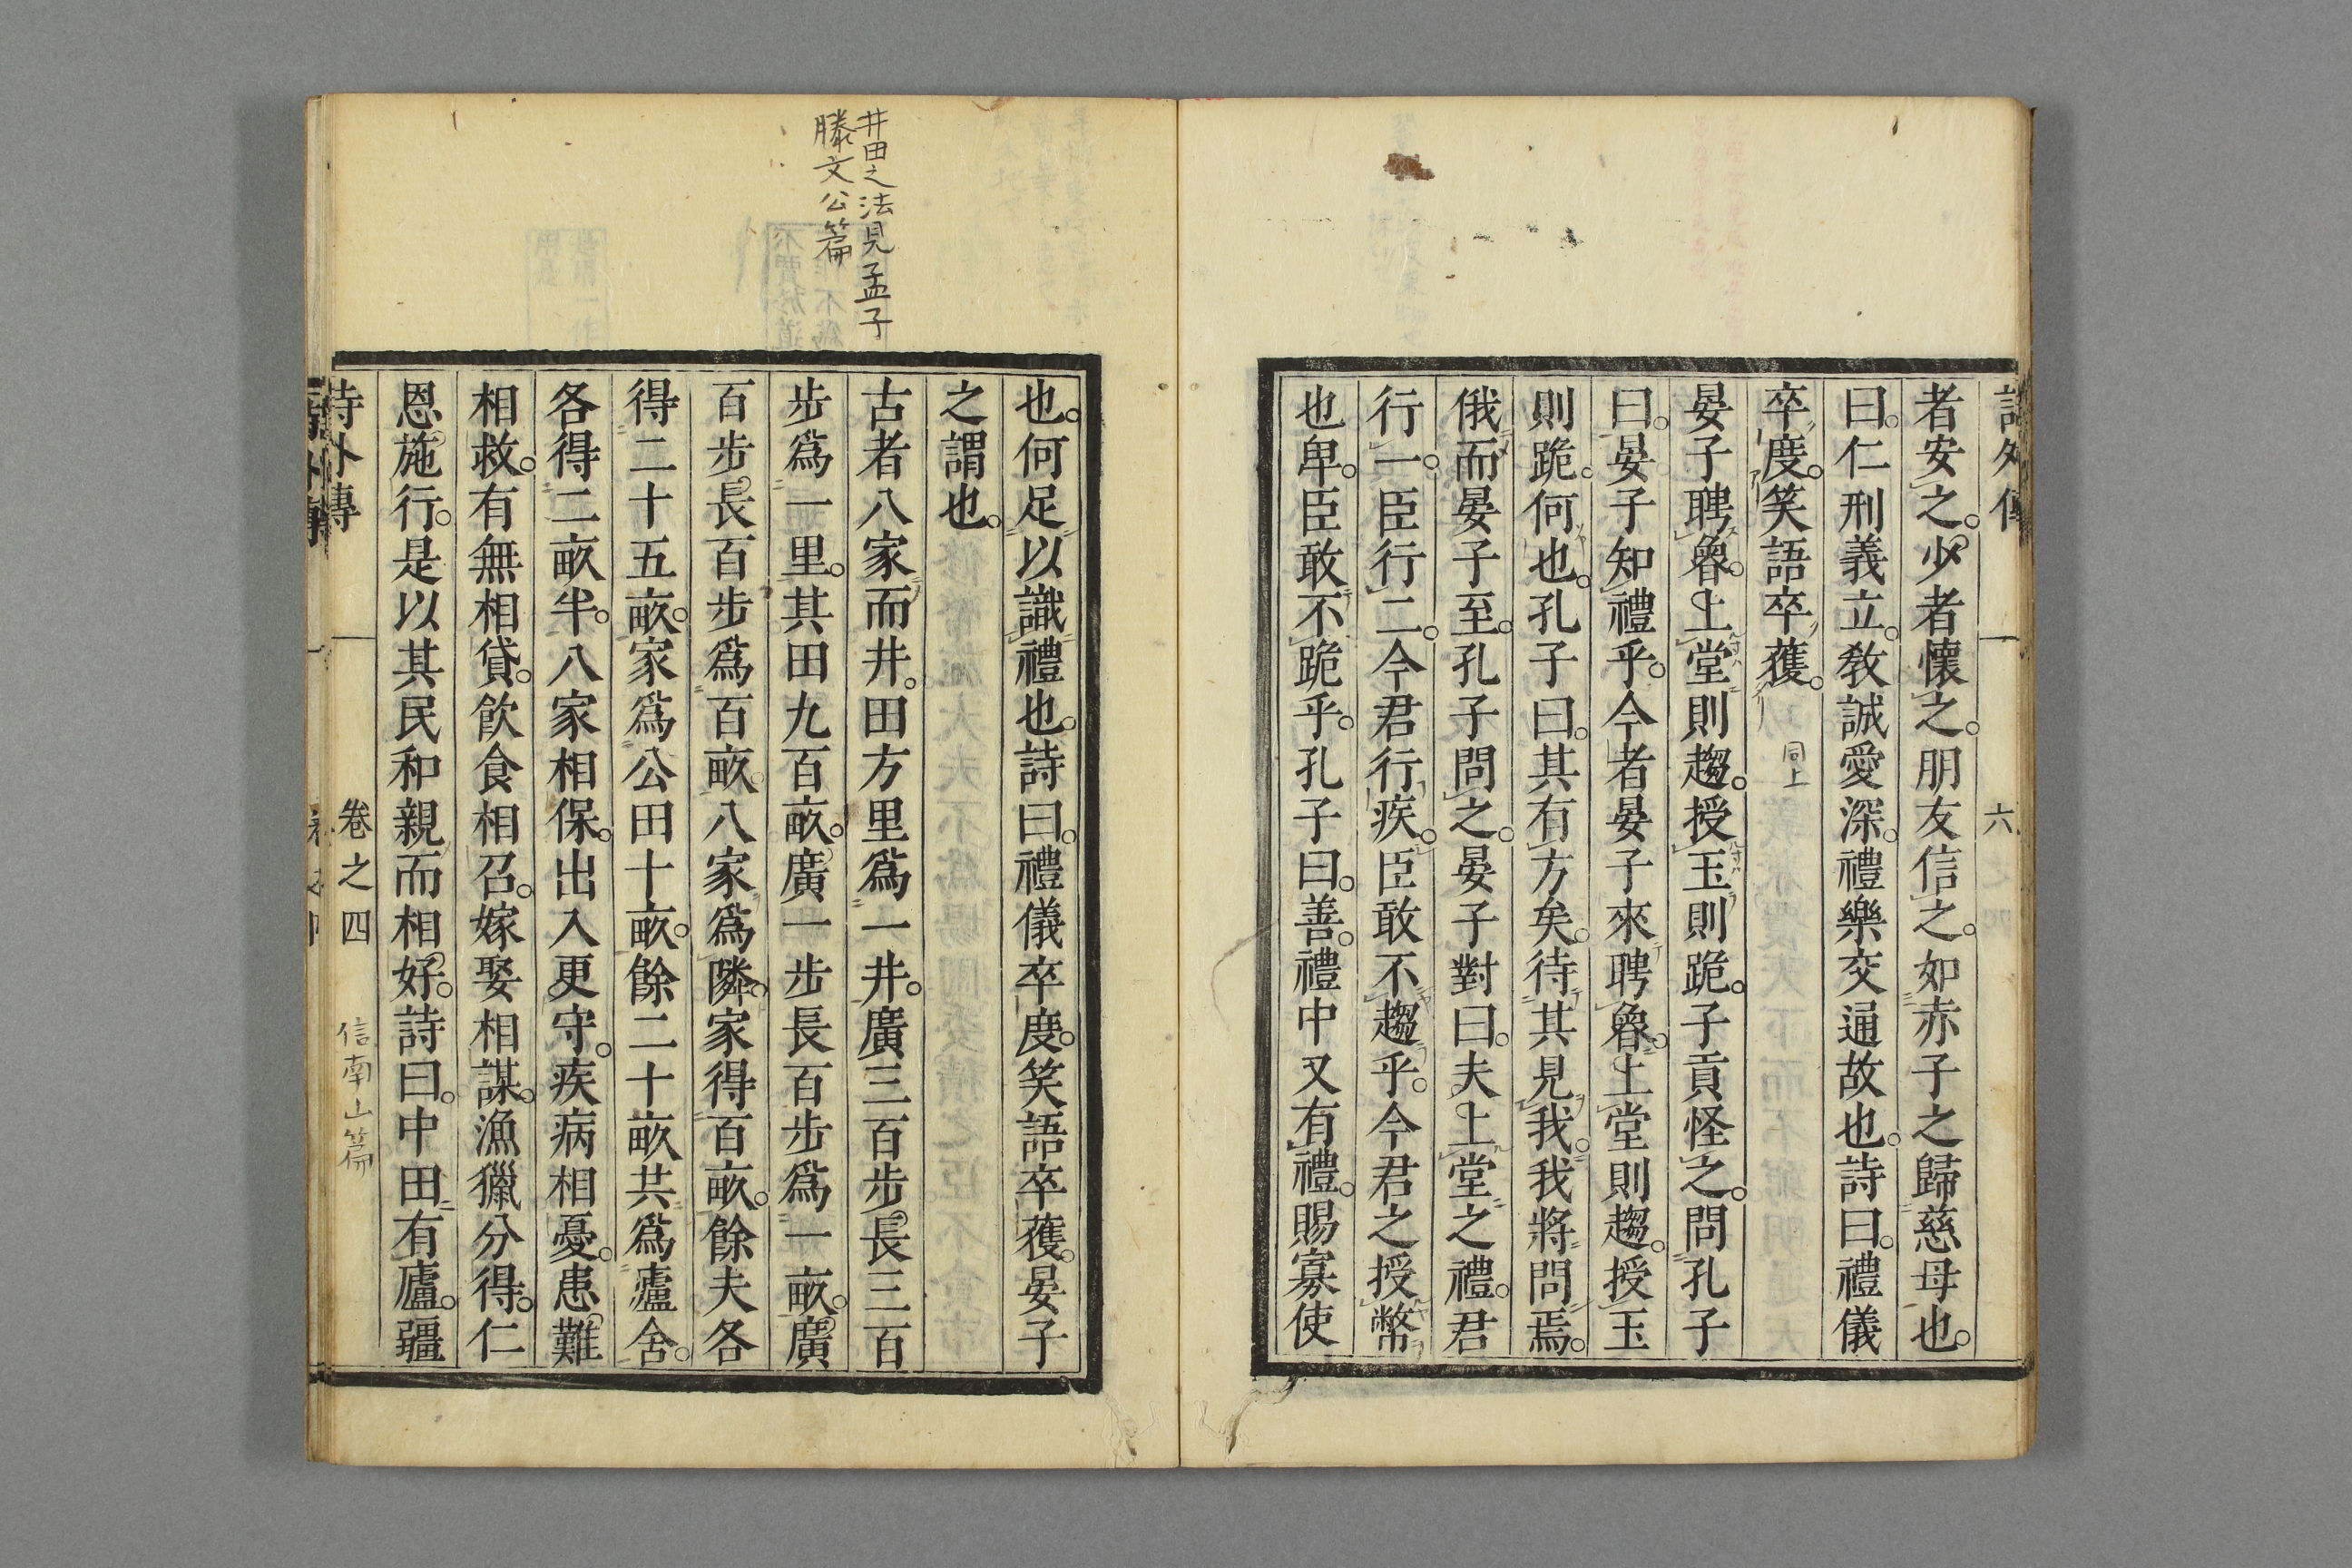 六
者安之。少者懷之。朋友信之。如赤子之歸慈母也。
曰。仁刑義立。敎誠愛深。禮樂交通故也。詩曰。禮儀
卒度。笑語卒獲。
同上
晏子聘魯。上堂則趨。授玉則跪。子貢怪之。問孔子
曰。晏子知禮乎。今者晏子來聘魯。上堂則趨。授玉
則跪。何也。孔子曰。其有方矣。待其見我。我將問焉。
俄而晏子至。孔子問之。晏子對曰。夫上堂之禮。君
行一。臣行二。今君行疾。臣敢不趨乎。今君之授幣
也卑。臣敢不跪乎。孔子曰。善。禮中又有禮。賜寡使
也。何足以識禮也。詩曰。禮儀卒度。笑語卒獲。晏子
之謂也。
井田之法見孟子
滕文公篇
古者八家而井。田方里爲一井。廣三百步。長三百
步爲一里。其田九百畝。廣一步長百步爲一畝。廣
百步。長百步爲百畝。八家爲隣。家得百畝。餘夫各
得二十五畝。家爲公田十畝。餘二十畝共爲廬舍。
各得二畝半。八家相保。出入更守。疾病相憂。患難
相救。有無相貸。飮食相召。嫁娶相謀。漁獵分得。仁
恩施行。是以其民和親而相好。詩曰。中田有廬。疆
詩外傳 卷之四
信南山篇